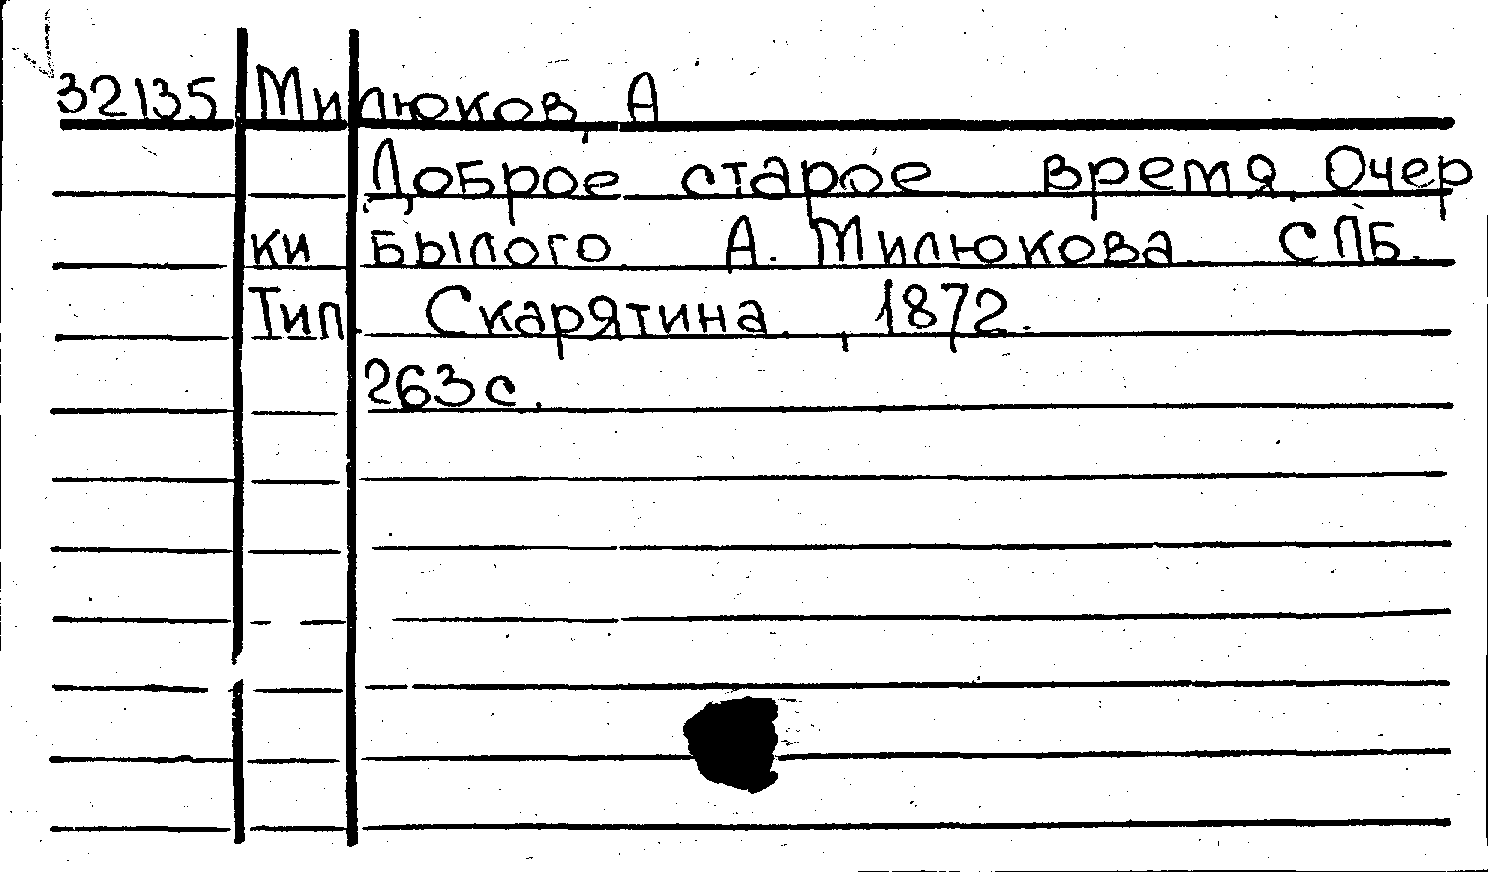 32135 Милюков, А
Доброе старое время. Очер
ки былого А. Милюкова. СПБ.
Тип. Скарятина, 1872.
263с.